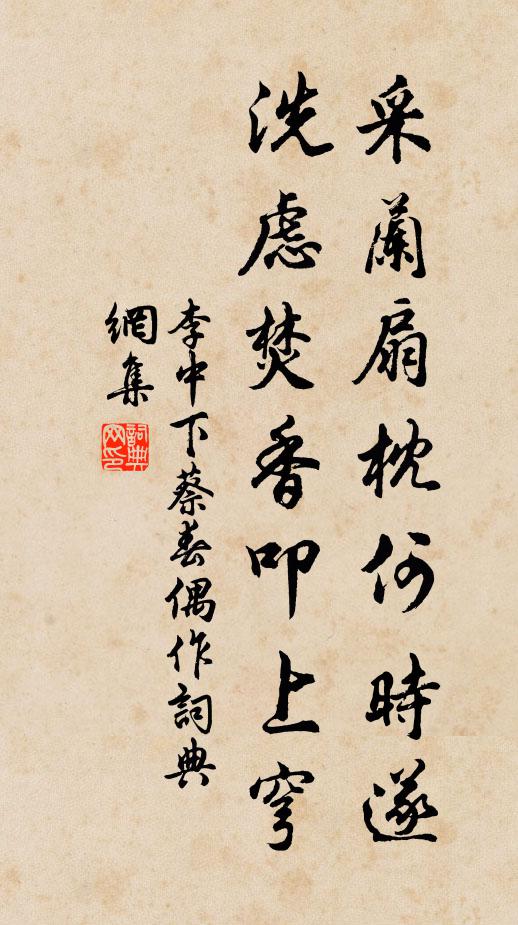 采蘭扇枕何時遂
洗慮焚香叩上穹
李中下蔡春偶作詞典
網集
詞典網印